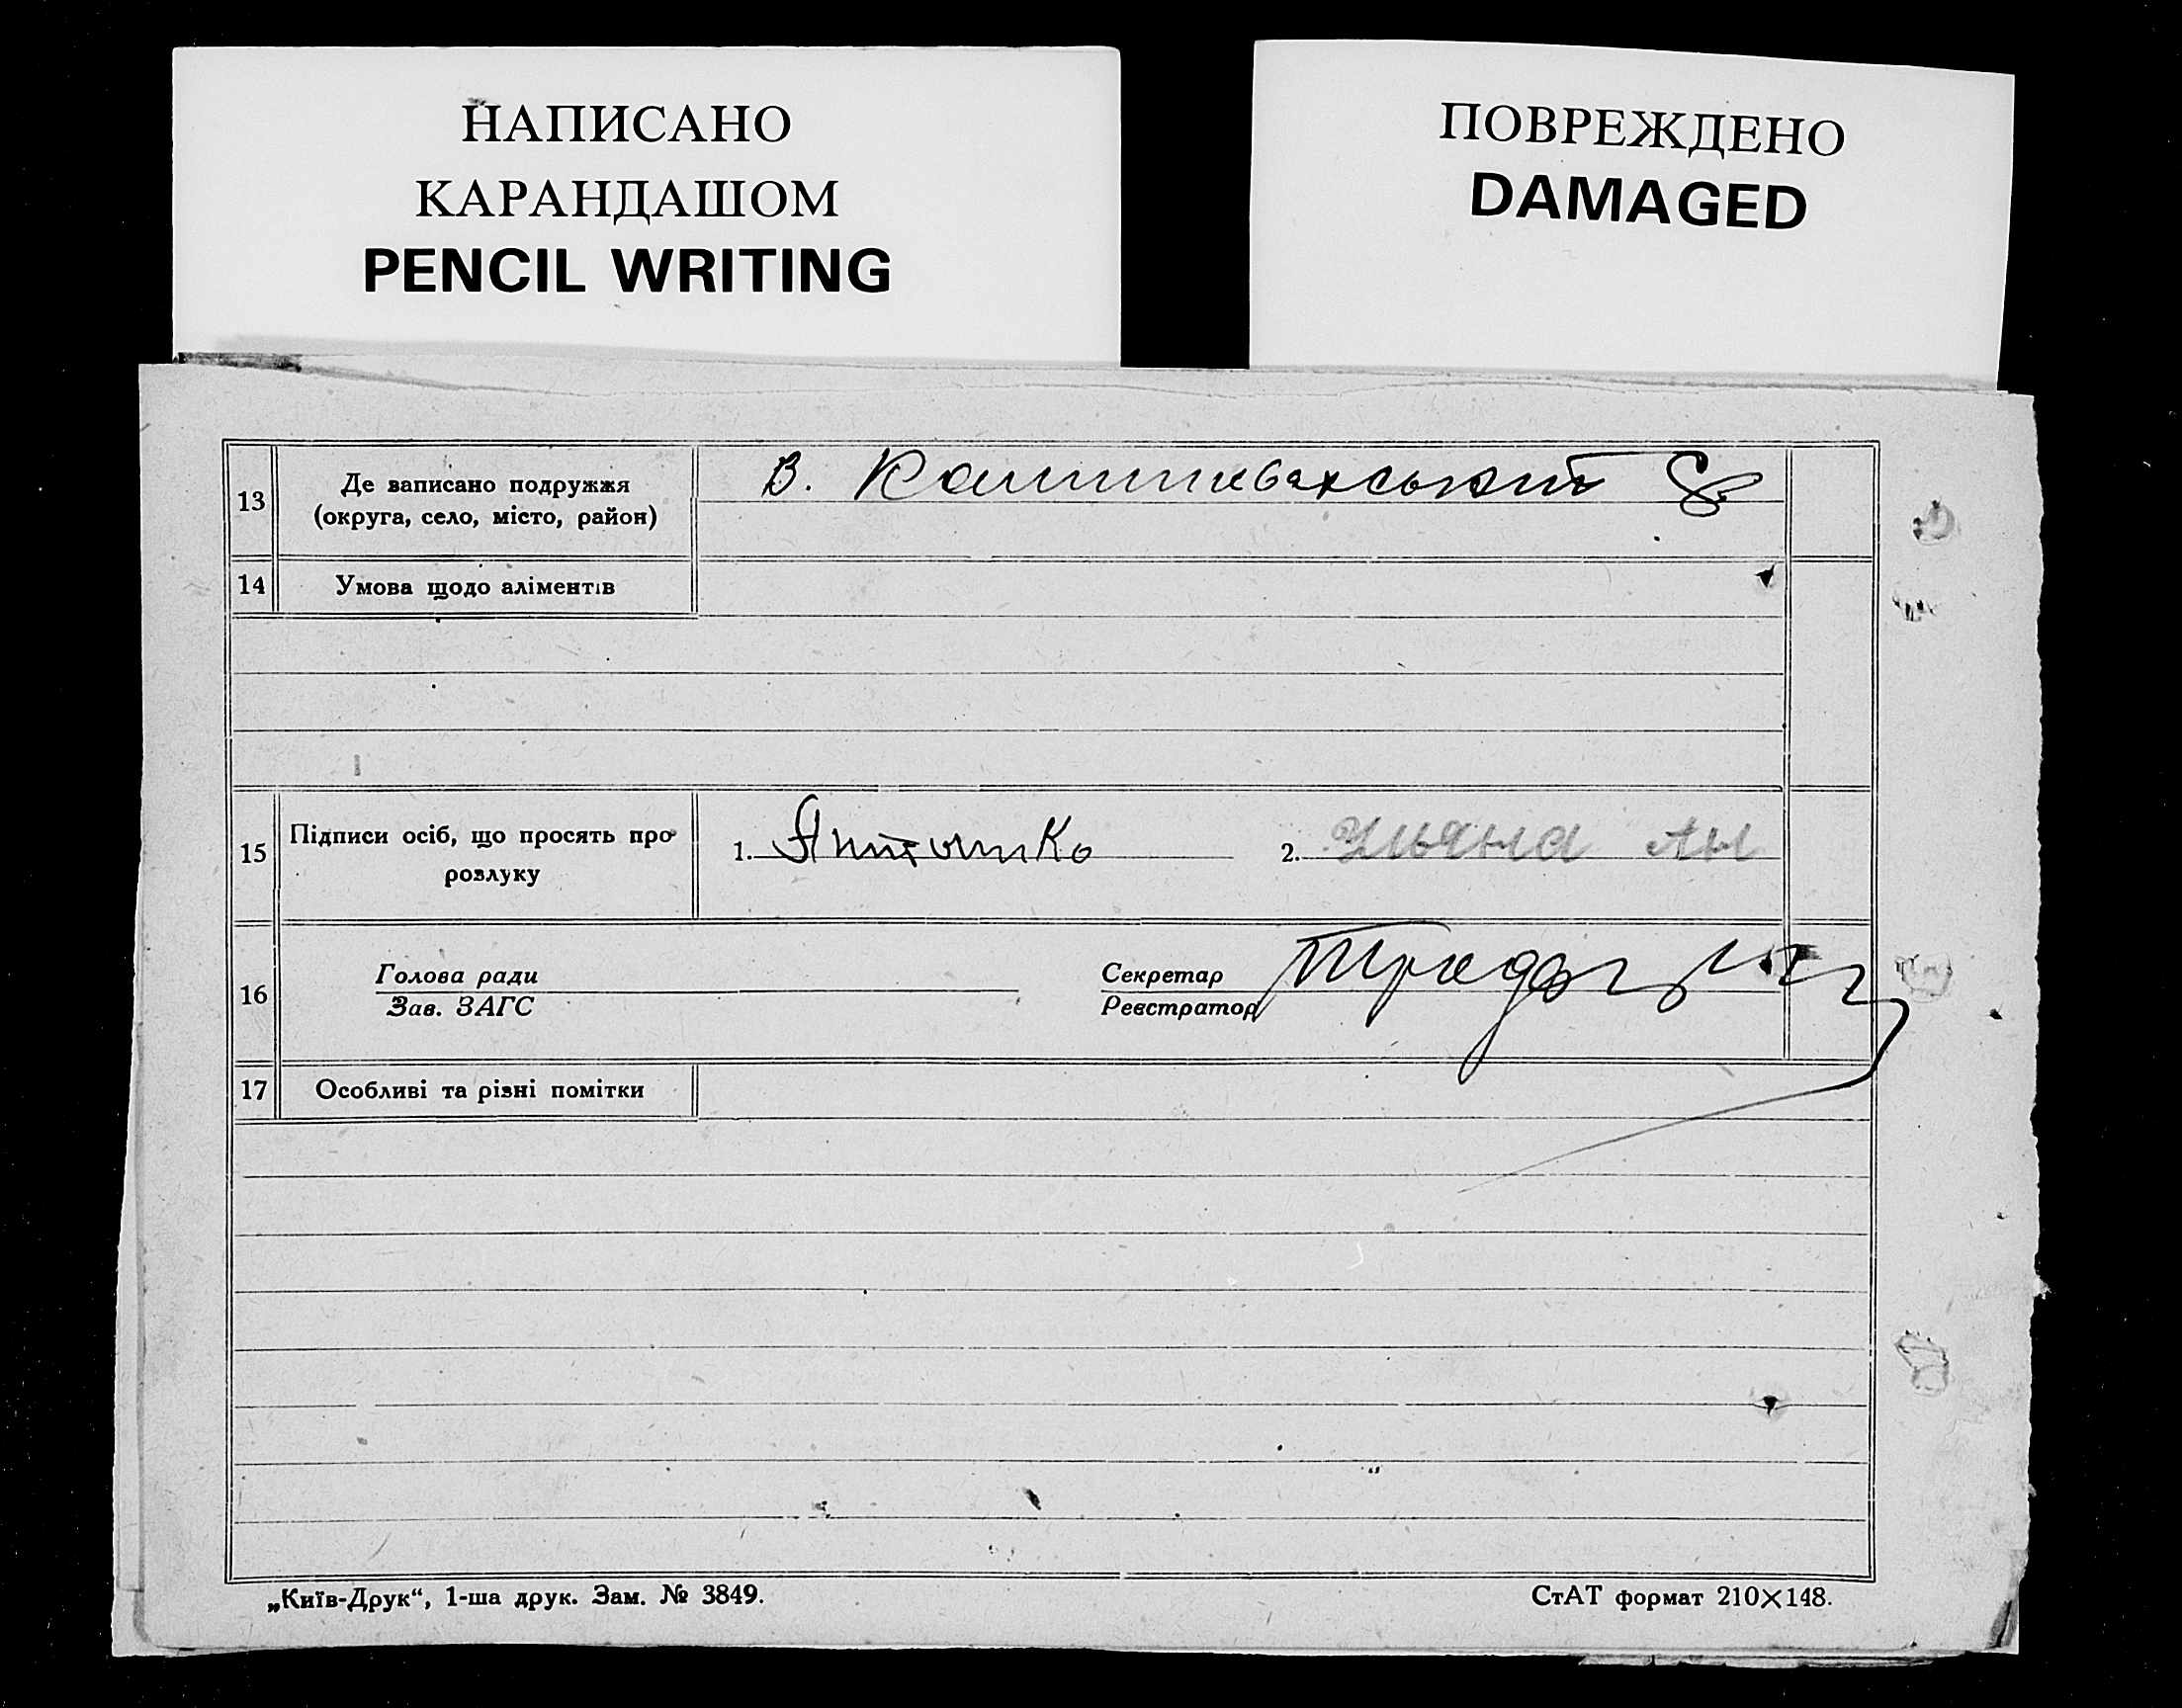 НАПИСАНО
КАРАНДАШОМ
PENCIL WRITING
ПОВРЕЖДЕНО
DAMAGED
13 Де записано подружжя
(округа, село, місто, район)
В.
14 Умова щодо аліментів
15 Підписи осіб, що просять про
розлуку
1. 2. Уляна Ан
16 Голова ради
Зав. ЗАГС
Секретар
Реєстратор
17 Особливі та різні помітки
„Київ-Друк“, 1-ша друк. Зам. № 3849.
СтАТ формат 210×148.